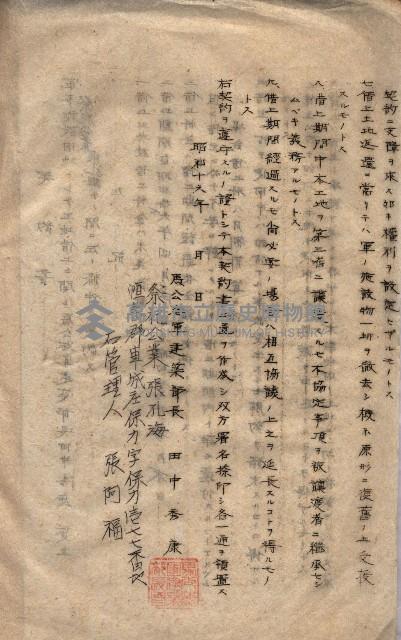 契約ニ支障ヲ来ス如キ権利ヲ設定セザルモノトス
七、借上土地返還ニ當リテハ軍ノ施設物一切ヲ撤去シ概ネ原形ニ復舊ノ上受授
スルモノトス
八、借上期間中本土地ヲ第三者ニ譲渡スルモ本協定事項ヲ被譲渡者ニ継承セシ
ムベキ義務アルモノトス
九、借上期間経過スルモ尚必要ノ場合ハ相互協議ノ上之ヲ延長スルコトヲ得ルモノ
トス
右契約ヲ遵守スルノ證トシテ本契約書貳通ヲ作成シ双方署名捺印シ各一通ヲ領置ス
昭和十九年 月 日
馬公海軍建築部長 田中秀康
祭祀公業 張孔海
郡車城庄保力字保力壱七七番地
右管理人 張阿福
高雄市立歷史博物館